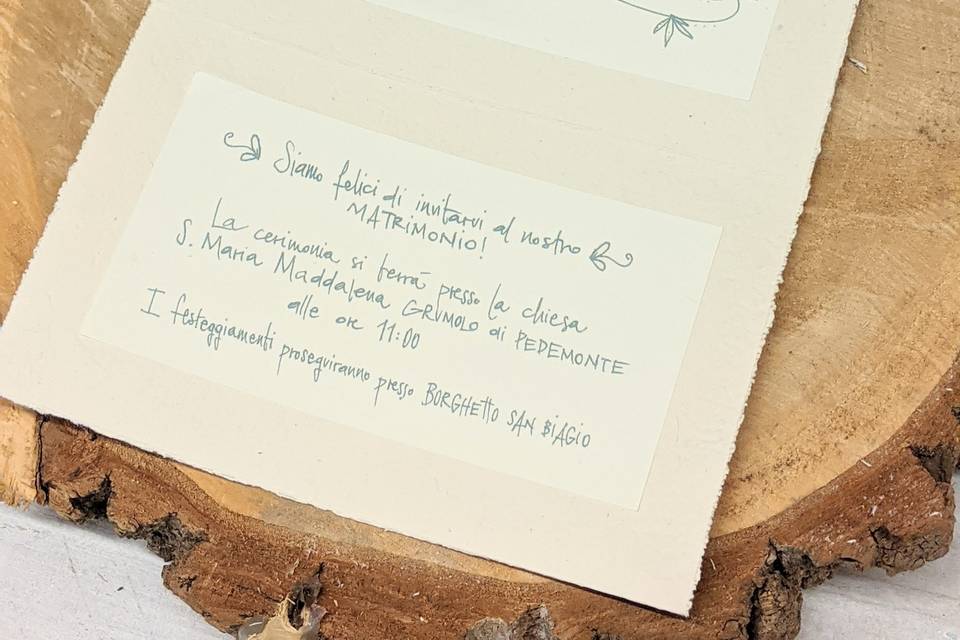 Siamo felici di invitarvi al nostro
MATRIMONIO!
La cerimonia si terrá presso la chiesa
S. Maria Maddalena GRUMOLO di PEDEMONTE
alle ore 11:00
I festeggiamenti proseguiranno presso BORGHETTO SAN BIAGIO